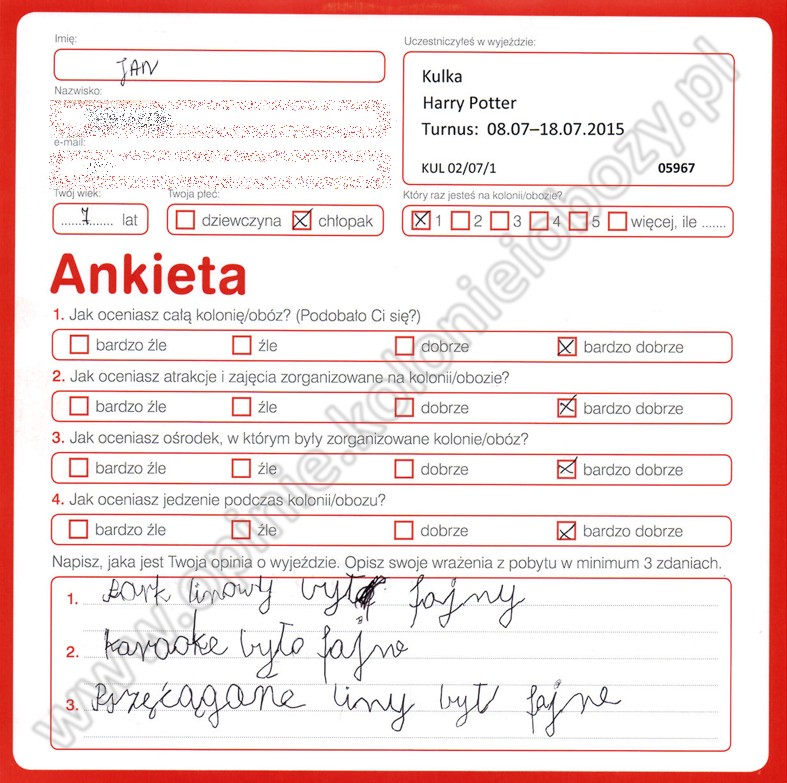 Imię:
JAN
Uczestniczyłeś w wyjeździe:
Kulka
Harry Potter
Turnus: 08.07–18.07.2015
KUL 02/07/1 05967
Nazwisko:
e-mail:
Twój wiek:
7 lat
Twoja płeć:
dziewczyna chłopak
Który raz jesteś na kolonii/obozie?
1 2 3 4 5 więcej, ile .......
Ankieta
1. Jak oceniasz całą kolonię/obóz? (Podobało Ci się?)
bardzo źle źle dobrze bardzo dobrze
2. Jak oceniasz atrakcje i zajęcia zorganizowane na kolonii/obozie?
bardzo źle źle dobrze bardzo dobrze
3. Jak oceniasz ośrodek, w którym były zorganizowane kolonie/obóz?
bardzo źle źle dobrze bardzo dobrze
4. Jak oceniasz jedzenie podczas kolonii/obozu?
bardzo źle źle dobrze bardzo dobrze
Napisz, jaka jest Twoja opinia o wyjeździe. Opisz swoje wrażenia z pobytu w minimum 3 zdaniach.
1. park linowy był fajny
2. karaoke było fajne
3. Pszęcągańe liny był fajne
www.opinie.kolonieiobozy.pl